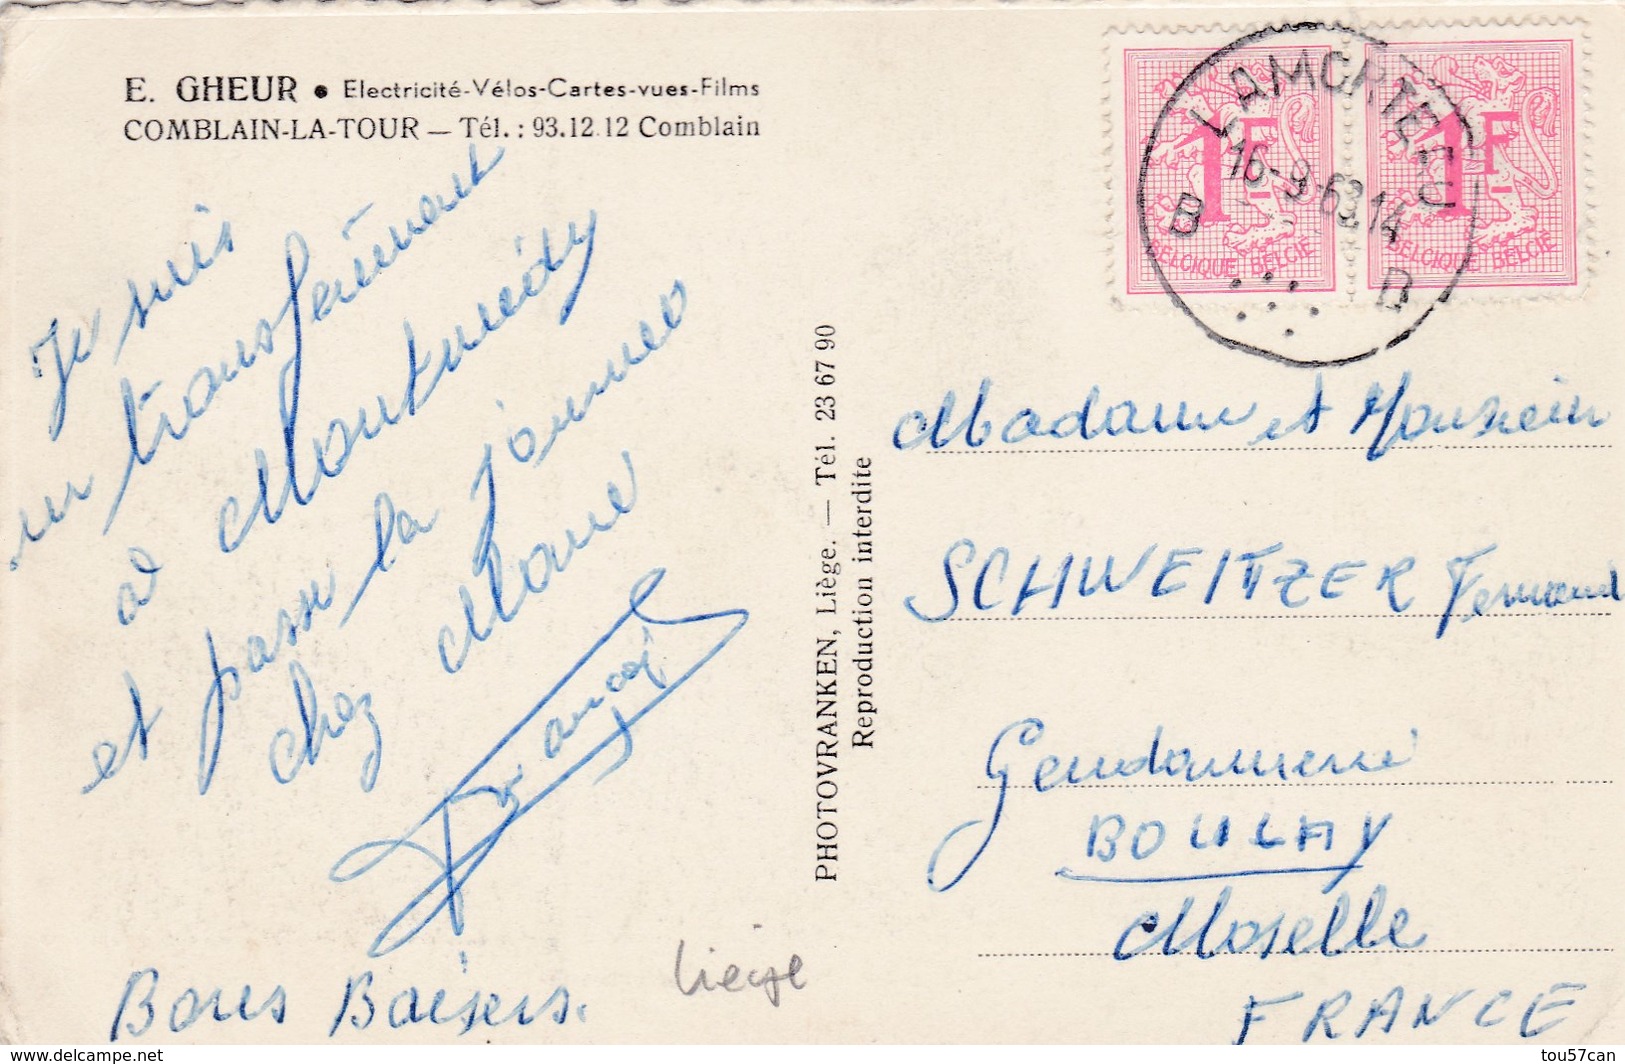 E. GHEUR • Electricité-Vélos-Cartes-vues-Films
COMBLAIN-LA-TOUR — Tél. : 93.12.12 Comblain
Je suis
en transferément
à Montmédy
et passe la journeé
chez
Bons Baisers.
Liège
PHOTOVRANKEN, Liège. — Tél. 23 67 90
Reproduction interdite
LAMORTEAU
16-9-63.14
B B
1F 1F
BELGIQUE BELGIË BELGIQUE BELGIË
Madame et Monsieur
SCHWEITZER Fernand
Gendarmerie
BOULAY
Moselle
FRANCE
www.delcampe.net
tou57can